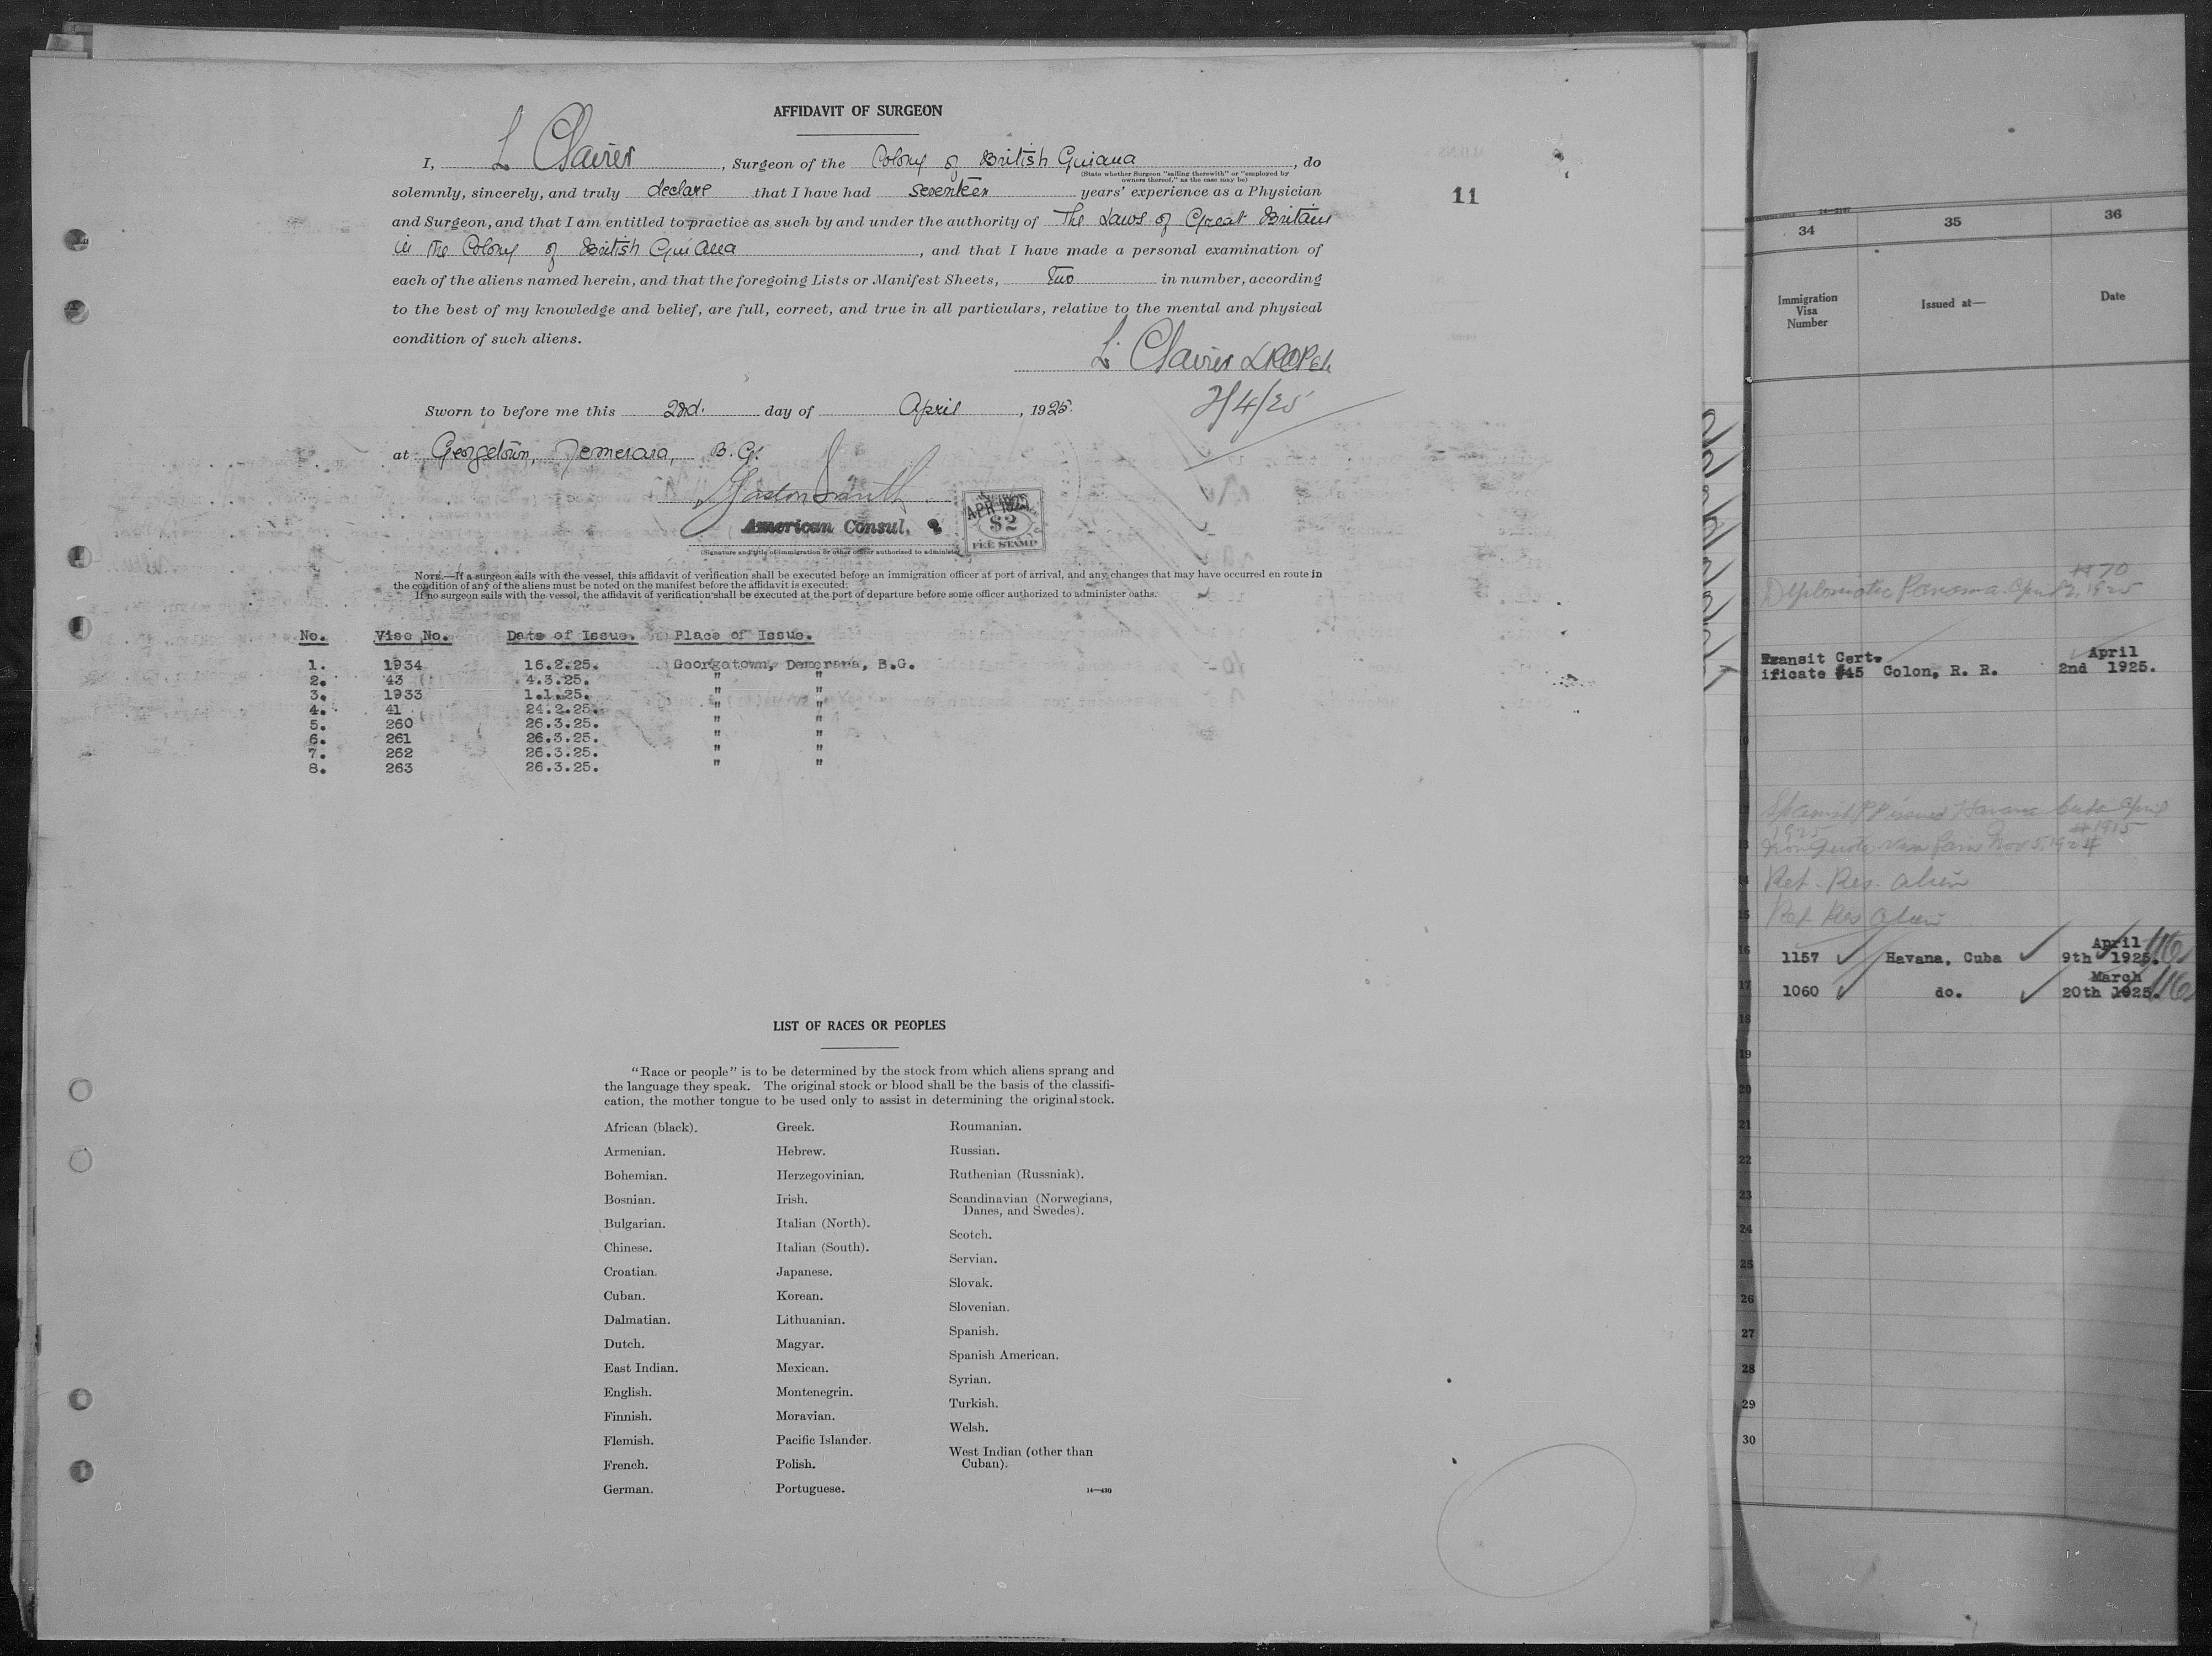 AFFIDAVIT OF SURGEON
I, L Clavier, Surgeon of the Colony of British Guiana, do
(State whether Surgeon "sailing therewith" or "employed by
owners thereof," as the case may be)
solemnly, sincerely, and truly declare that I have had seventeen years' experience as a Physician
and Surgeon, and that I am entitled to practice as such by and under the authority of The Laws of Great Britain
in the Colony of British Guiana, and that I have made a personal examination of
each of the aliens named herein, and that the foregoing Lists or Manifest Sheets, Two in number, according
to the best of my knowledge and belief, are full, correct, and true in all particulars, relative to the mental and physical
condition of such aliens.
L. Clavier
2/4/25
Sworn to before me this 2nd. day of April, 1925.
at Georgetown, Demerara, B. G.
American Consul.
APR 1925
$2
FEE STAMP
(Signature and title of immigration or other officer authorized to administer
NOTE.—If a surgeon sails with the vessel, this affidavit of verification shall be executed before an immigration officer at port of arrival, and any changes that may have occurred en route in
the condition of any of the aliens must be noted on the manifest before the affidavit is executed.
If no surgeon sails with the vessel, the affidavit of verification shall be executed at the port of departure before some officer authorized to administer oaths.
11
No. Vise No. Date of Issue. Place of Issue.
1. 1934 16.2.25. Georgetown, Demerara, B.G.
2. 43 4.3.25. " "
3. 1933 1.1.25. " "
4. 41 24.2.25. " "
5. 260 26.3.25. " "
6. 261 26.3.25. " "
7. 262 26.3.25. " "
8. 263 26.3.25. " "
LIST OF RACES OR PEOPLES
"Race or people" is to be determined by the stock from which aliens sprang and
the language they speak. The original stock or blood shall be the basis of the classifi-
cation, the mother tongue to be used only to assist in determining the original stock.
African (black).
Armenian.
Bohemian.
Bosnian.
Bulgarian.
Chinese.
Croatian.
Cuban.
Dalmatian.
Dutch.
East Indian.
English.
Finnish.
Flemish.
French.
German.
Greek.
Hebrew.
Herzegovinian.
Irish.
Italian (North).
Italian (South).
Japanese.
Korean.
Lithuanian.
Magyar.
Mexican.
Montenegrin.
Moravian.
Pacific Islander.
Polish.
Portuguese.
Roumanian.
Russian.
Ruthenian (Russniak).
Scandinavian (Norwegians,
Danes, and Swedes).
Scotch.
Servian.
Slovak.
Slovenian.
Spanish.
Spanish American.
Syrian.
Turkish.
Welsh.
West Indian (other than
Cuban).
14—430
34 35 36
Immigration
Visa
Number
Issued at—
Date
#70
Diplomatic Panama April 2, 1925
Transit Cert. April
ificate #45 Colon, R. R. 2nd 1925.
Spanish PP issued Havana Cuba April
1925 #1915
Non Quota Visa Paris Nov 5, 1924
Ret. Res. Alien
Ret Res Alien
April
16 1157 Havana, Cuba 9th 1925.
March
17 1060 do. 20th 1925.
18
19
20
21
22
23
24
25
26
27
28
29
30